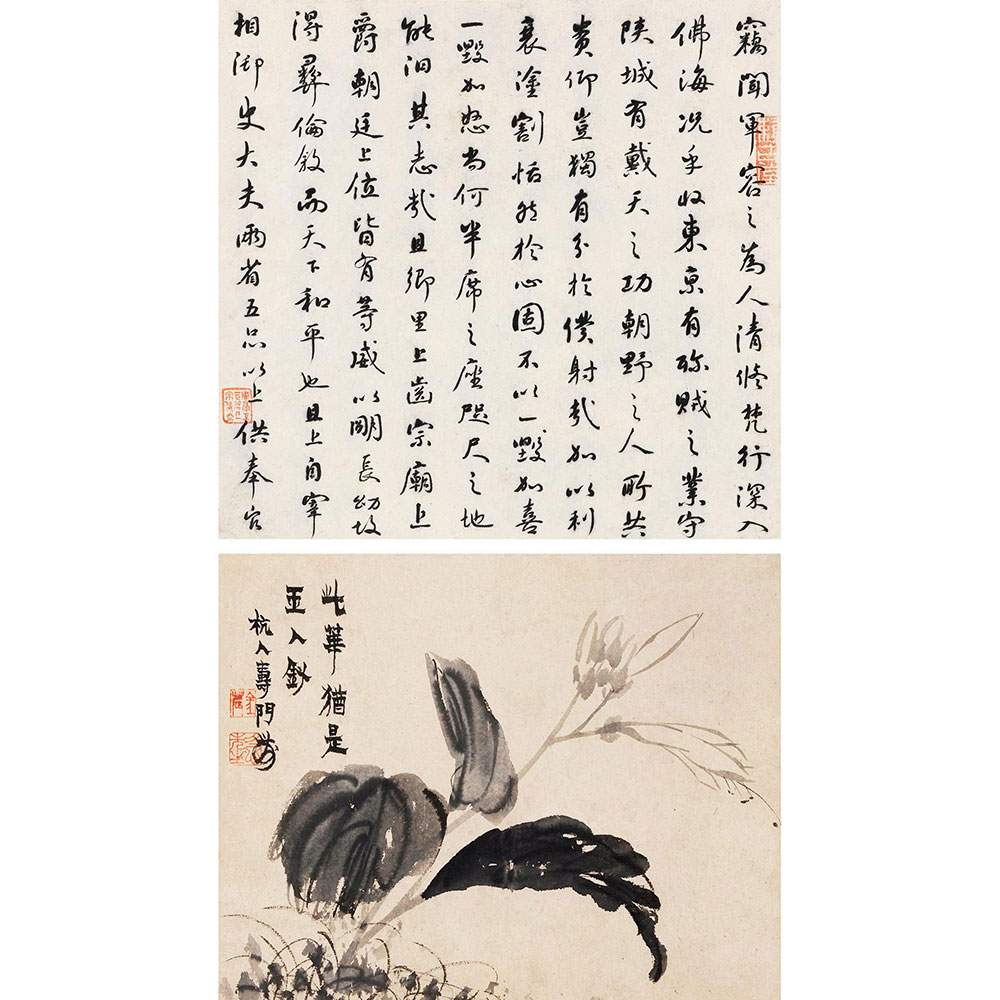 竊聞軍容之為人清修梵行深入
佛海況乎收東京有殄賊之業守
陝城有戴天之功朝野之人所共
貴仰豈獨有分於僕射哉如以利
衰塗割恬然於心固不以一毀加喜
一毀加怒尚何半席之座咫尺之地
能汩其志哉且鄉里上齒宗廟上
爵朝廷上位皆有等威以明長幼故
得彝倫敘而天下和平也且上自宰
相御史大夫兩省五品以上供奉官
此華猶是
玉人釵
杭人壽門